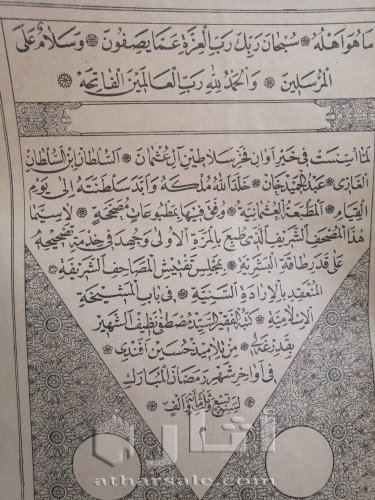 ما هو اهله ❋ سبحان ربك رب العزة عما يصفون ❋ وسلام على
المرسلين ❋ والحمد لله رب العالمين الفاتحة ❋
لما اسست في خير اوان فخر سلاطين آل عثمان ❋ السلطان ابن السلطان
الغازى عبد الحميد خان ❋ خلد الله ملكه وابد سلطنته الى يوم
القيام ❋ المطبعة العثمانية ❋ ووفق فيها بمطبوعات مصححة ❋ لاسيما
هذا المصحف الشريف الذى طبع بالمرة الاولى وجهد فى خدمة تصحيحه
على قدر طاقة البشرية ❋ بمجلس تفتيش المصاحف الشريفة ❋
المنعقد بالارادة السنية ❋ فى باب المشيخة
الاسلامية ❋ كتبه الفقير السيد مصطفى نظيف الشهير
بقدرغه لى ❋ من تلاميذ حسين افندى ❋
فى اواخر شهر رمضان المبارك
لسنة تسع وثلثمائة والف
أثارنا
atharsale.com